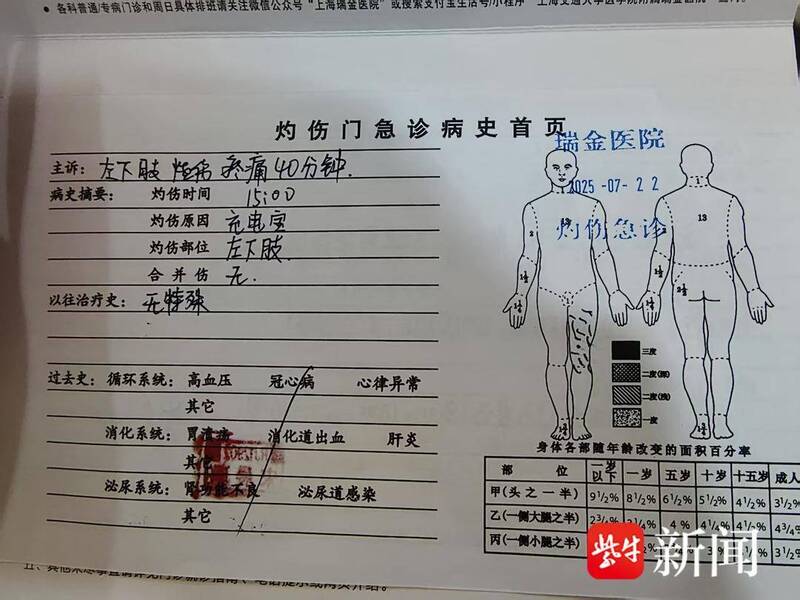 各科普通/专病门诊和周日具体排班请关注微信公众号“上海瑞金医院”或搜索支付宝生活号/小程序
灼伤门急诊病史首页
瑞金医院
2025-07-22
灼伤急诊
主诉: 左下肢 烧伤 疼痛40分钟.
病史摘要: 灼伤时间 15:00
灼伤原因 充电宝
灼伤部位 左下肢.
合并伤 无.
以往治疗史: 无特殊
过去史: 循环系统: 高血压 冠心病 心律异常
其它
消化系统: 胃溃疡 消化道出血 肝炎
其它
泌尿系统: 肾功能不良 泌尿道感染
其它
13
13
2
1½
1½
1¼
2½
三度
二度(深)
二度(浅)
一度
身体各部随年龄改变的面积百分率
部位 一岁以下 一岁 五岁 十岁 十五岁 成人
甲(头之一半) 9½% 8½% 6½% 5½% 4½% 3½%
乙(一侧大腿之半) 2¾% 4% 4¼% 4½% 4¾%
丙(一侧小腿之半) 3½%
紫牛新闻